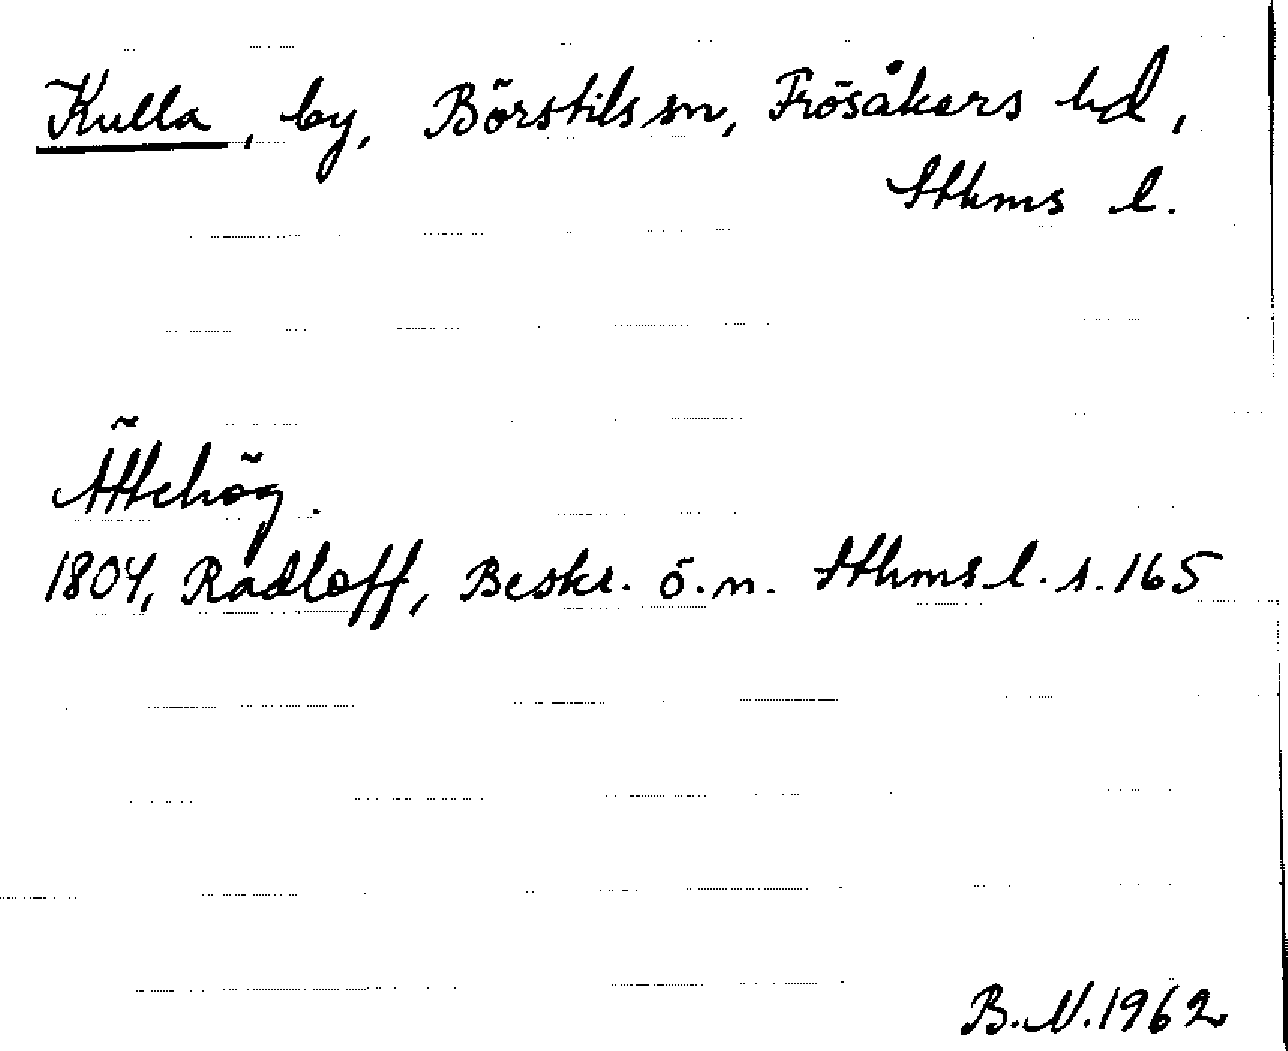 Kulla, by, Börstils sn, Frösåkers hd,
Sthms l.
Ättehög.
1804, Radloff, Beskr. ö. n. Sthms l. s. 165
B. N. 1962